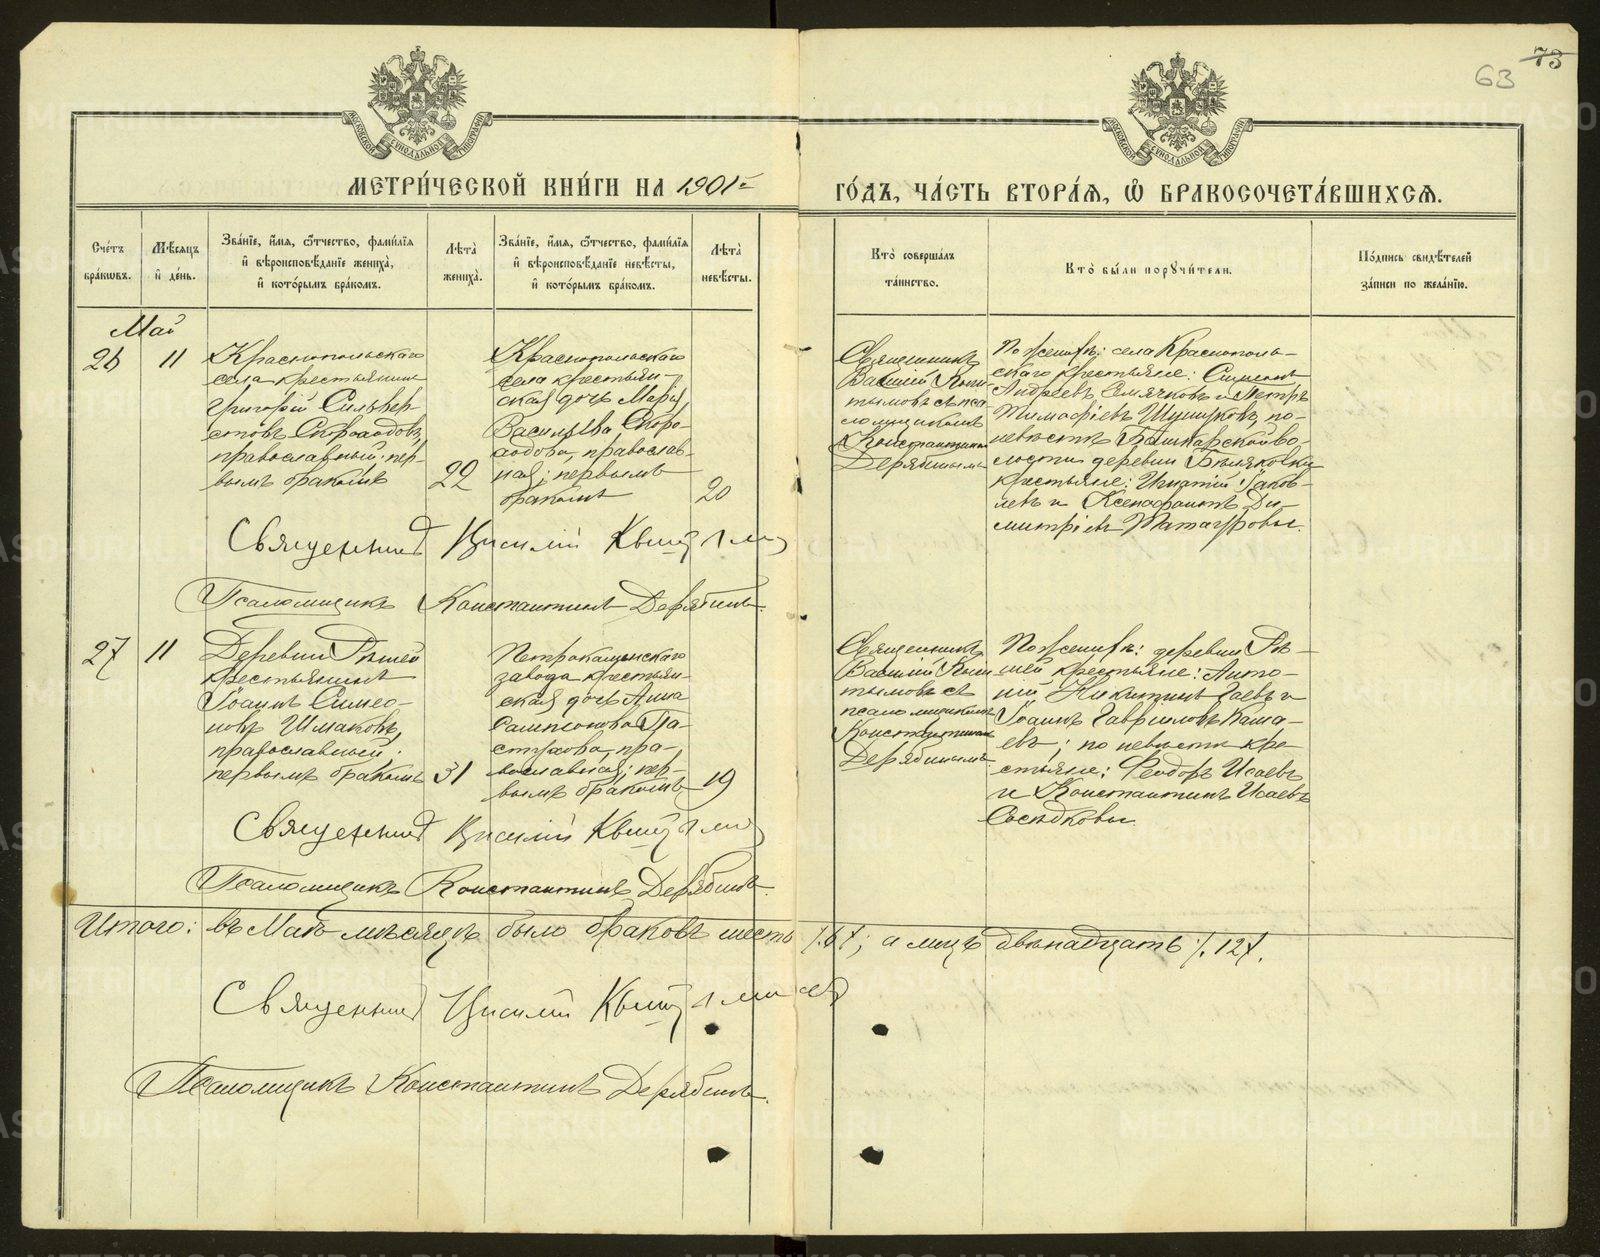 63 73
МОСКОВСКОЙ СѴНОДАЛЬНОЙ ТИПОГРАФІИ
МОСКОВСКОЙ СѴНОДАЛЬНОЙ ТИПОГРАФІИ
МЕТРИ́ЧЕСКОЙ КНИ́ГИ НА 1901 г.
ГО́ДЪ, ЧА́СТЬ ВТОРА́Ѧ, Ѽ БРАКОСОЧЕТА́ВШИХСѦ.
Сче́тъ
бра́кωвъ.
Мѣ́сѧцъ
и҆ де́нь.
Зва́нїе, и҆́мѧ, ѻ҆́тчество, фами́лїѧ
и҆ вѣроисповѣ́данїе жениха̀,
и҆ кото́рымъ бра́комъ.
Лѣ́та
жениха̀.
Зва́нїе, и҆́мѧ, ѻ҆́тчество, фами́лїѧ
и҆ вѣроисповѣ́данїе невѣ́сты,
и҆ кото́рымъ бра́комъ.
Лѣ́та
невѣ́сты.
Кто̀ соверша́лъ
та́инство.
Кто̀ бы́ли порꙋчи́тели.
По́дпись свидѣ́телей
за́писи по жела́нїю.
Май
26 11
Краснопольскаго
села крестьянинъ
Григорій Сильвер-
стовъ Скороходовъ,
православный; пер-
вымъ бракомъ
22
Краснопольскаго
села крестьян-
ская дочь Марія
Васильева Скоро-
ходова, православ-
ная; первымъ
бракомъ
20
Священникъ
Василій
съ пса-
ломщикомъ
Константиномъ
Дерябинымъ
По женихѣ: села Краснополь-
скаго крестьяне: Симеонъ
Андреевъ Семячковъ и Петръ
Тимофіевъ по-
невѣстѣ Башкарской во-
лости деревни Бѣляковки
крестьяне: Игнатій Іаков-
левъ и Ксенофонтъ Ди-
митріевъ Татауровы.
Священникъ Василій
Псаломщикъ Константинъ Дерябинъ.
27 11
Деревни Рѣшей
крестьянинъ
Іоаннъ Симео-
новъ Шмаковъ,
православный;
первымъ бракомъ
31
Петрокаменскаго
завода крестьян-
ская дочь Анна
Сампсонова Па-
стухова, пра-
вославная; пер-
вымъ бракомъ
19
Священникъ
Василій
съ
псаломщикомъ
Константиномъ
Дерябинымъ
По женихѣ: деревни Рѣ-
шей крестьяне: Анто-
ній Никитинъ Гаевъ и
Іоаннъ Гавриловъ
евъ; по невѣстѣ кре-
стьяне: Ѳеодоръ Исаевъ
и Константинъ Исаевъ
Сосѣдковы.
Священникъ Василій
Псаломщикъ Константинъ Дерябинъ.
Итого: въ Маѣ мѣсяцѣ было браковъ шесть /.6./; а лицъ двѣнадцать /.12./.
Священникъ Василій
Псаломщикъ Константинъ Дерябинъ.
METRIKI.GASO-URAL.RU